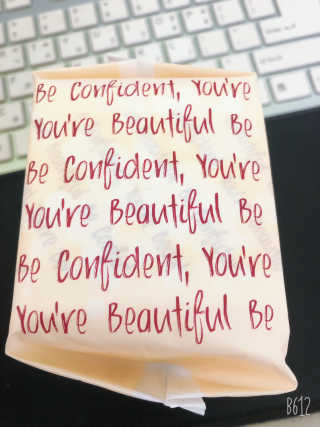 Be Confident, You're
You're Beautiful Be
Be Confident, You're
You're Beautiful Be
Be Confident, You're
You're Beautiful Be
B612